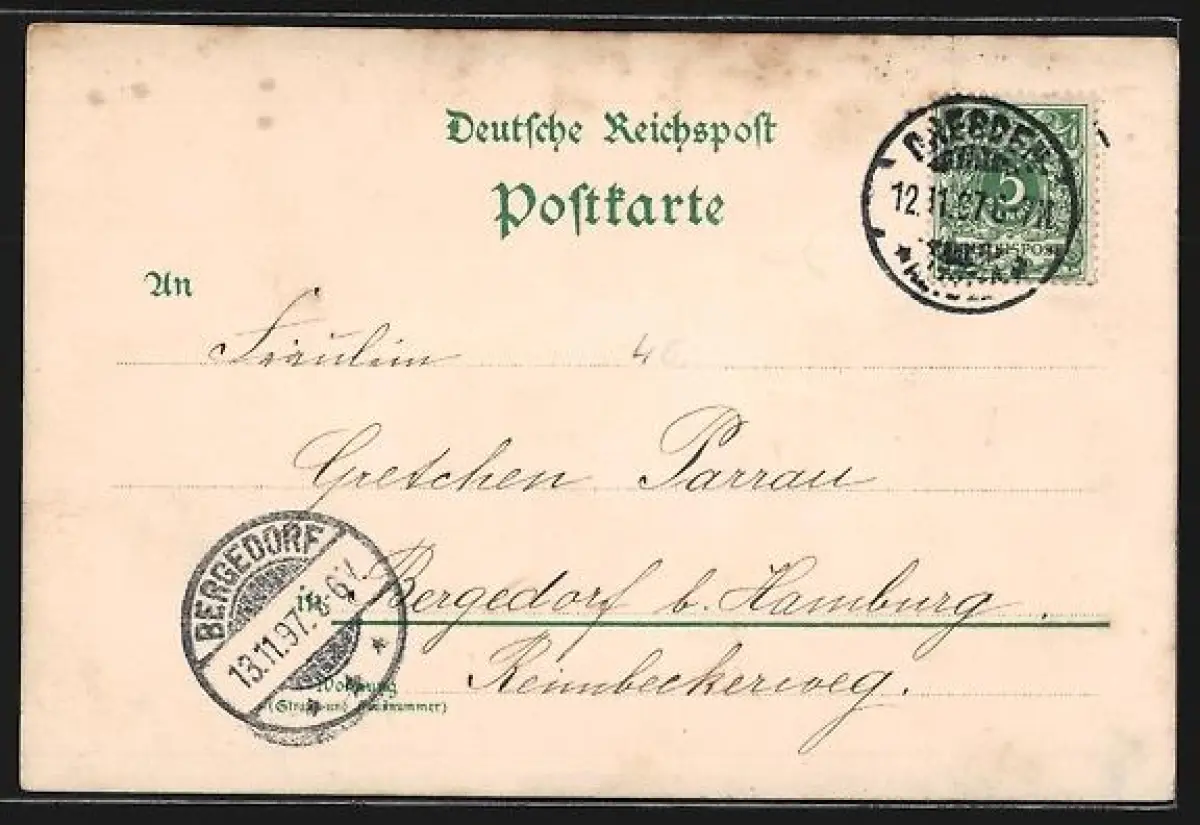 Deutsche Reichspost
Postkarte
DRESDEN
12.11.97
5
REICHSPOST
An
Fräulein
Gretchen Parrau
in Bergedorf b. Hamburg.
Reinbeckerweg.
BERGEDORF
13.11.97.
Wohnung
(Straße und Hausnummer)